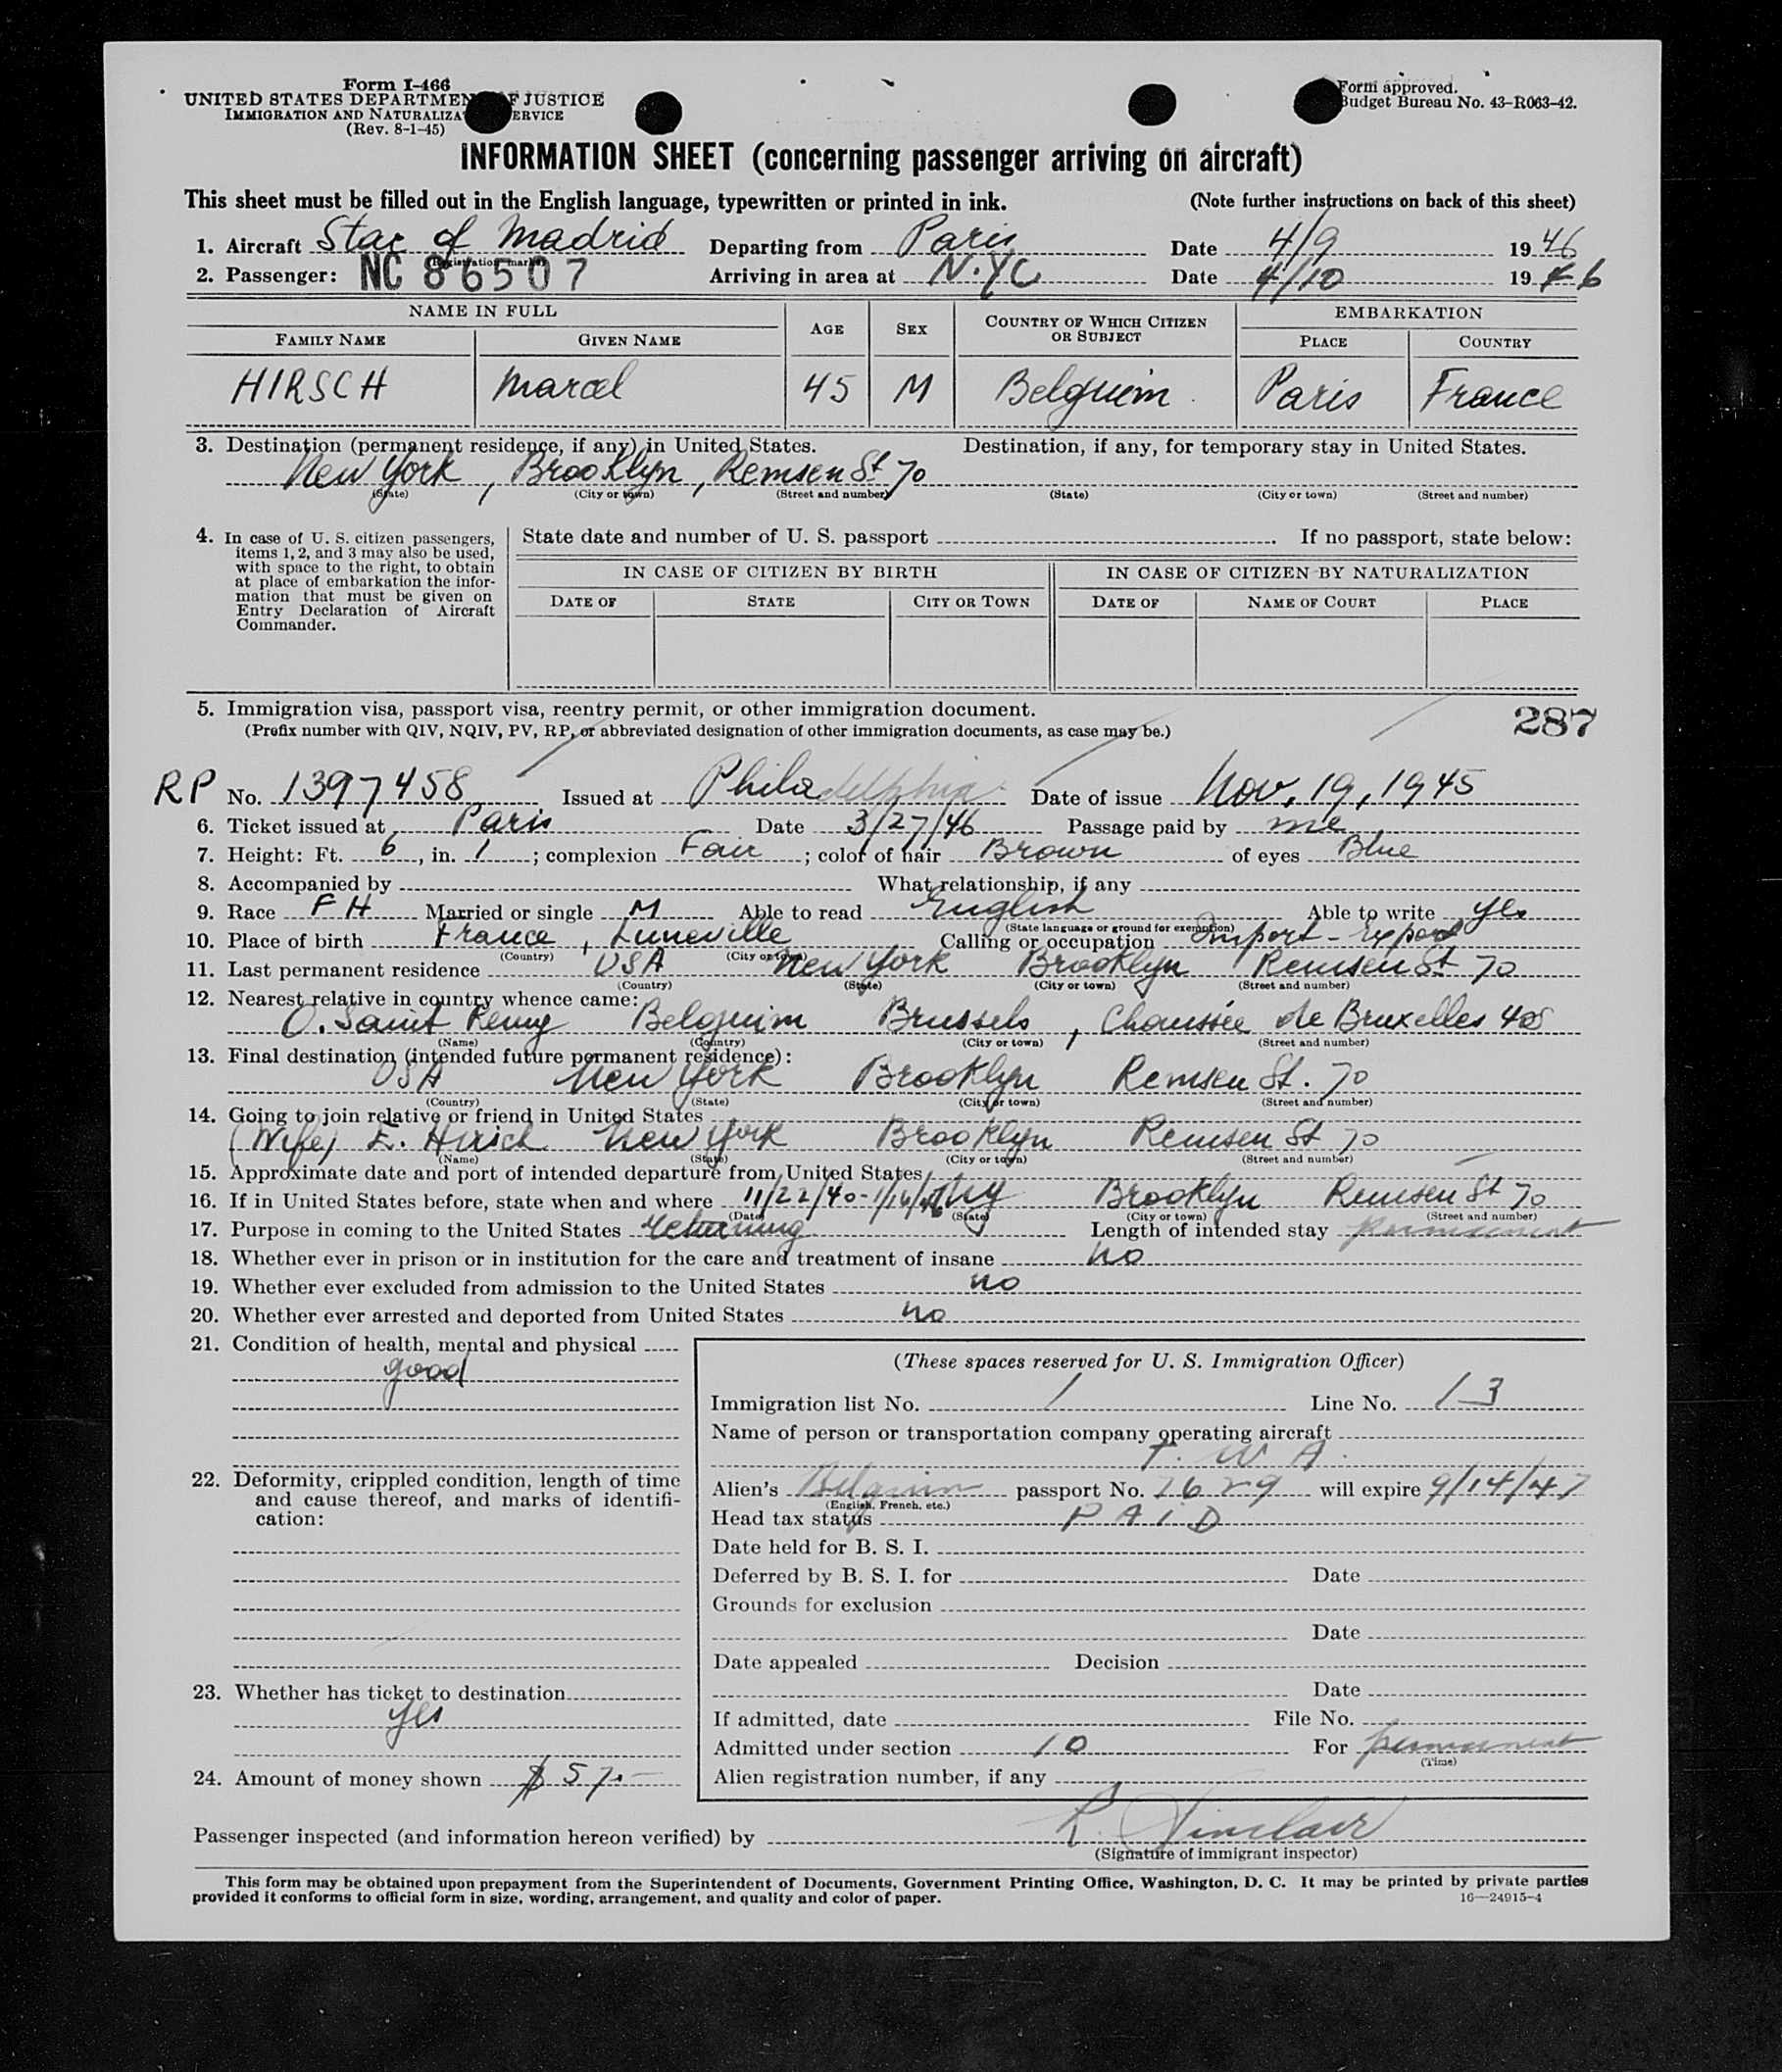 Form I-466
UNITED STATES DEPARTMENT OF JUSTICE
IMMIGRATION AND NATURALIZATION SERVICE
(Rev. 8-1-45)
Form approved.
Budget Bureau No. 43-R063-42.
INFORMATION SHEET (concerning passenger arriving on aircraft)
This sheet must be filled out in the English language, typewritten or printed in ink. (Note further instructions on back of this sheet)
1. Aircraft Star of Madrid Departing from Paris Date 4/9 1946
(Registration marks)
2. Passenger: NC 86507 Arriving in area at N.Y.C Date 4/10 1946
NAME IN FULL AGE SEX COUNTRY OF WHICH CITIZEN OR SUBJECT EMBARKATION
FAMILY NAME GIVEN NAME PLACE COUNTRY
HIRSCH Marcel 45 M Belguim Paris France
3. Destination (permanent residence, if any) in United States. Destination, if any, for temporary stay in United States.
New York, Brooklyn, Remsen St 70
(State) (City or town) (Street and number) (State) (City or town) (Street and number)
4. In case of U. S. citizen passengers, items 1, 2, and 3 may also be used, with space to the right, to obtain at place of embarkation the information that must be given on Entry Declaration of Aircraft Commander.
State date and number of U. S. passport . If no passport, state below:
IN CASE OF CITIZEN BY BIRTH IN CASE OF CITIZEN BY NATURALIZATION
DATE OF STATE CITY OR TOWN DATE OF NAME OF COURT PLACE
5. Immigration visa, passport visa, reentry permit, or other immigration document.
(Prefix number with QIV, NQIV, PV, RP, or abbreviated designation of other immigration documents, as case may be.)
287
RP No. 1397458 Issued at Philadelphia Date of issue Nov. 19, 1945
6. Ticket issued at Paris Date 3/27/46 Passage paid by me
7. Height: Ft. 6, in. 1; complexion Fair; color of hair Brown of eyes Blue
8. Accompanied by What relationship, if any
9. Race FH Married or single M Able to read English Able to write yes
(State language or ground for exemption)
10. Place of birth France, Luneville Calling or occupation Import-Export
(Country) (City or town)
11. Last permanent residence USA New York Brooklyn Remsen St 70
(Country) (State) (City or town) (Street and number)
12. Nearest relative in country whence came:
O. Saint Remy Belguim Brussels, Chaussée de Bruxelles
(Name) (Country) (City or town) (Street and number)
13. Final destination (intended future permanent residence):
USA New York Brooklyn Remsen St. 70
(Country) (State) (City or town) (Street and number)
14. Going to join relative or friend in United States
(Wife) E. Hirsch New York Brooklyn Remsen St 70
(Name) (State) (City or town) (Street and number)
15. Approximate date and port of intended departure from United States
16. If in United States before, state when and where 11/22/40-1/16/46 NY Brooklyn Remsen St 70
(Date) (State) (City or town) (Street and number)
17. Purpose in coming to the United States returning Length of intended stay permanent
18. Whether ever in prison or in institution for the care and treatment of insane no
19. Whether ever excluded from admission to the United States no
20. Whether ever arrested and deported from United States no
21. Condition of health, mental and physical
good
22. Deformity, crippled condition, length of time and cause thereof, and marks of identification:
23. Whether has ticket to destination
yes
24. Amount of money shown $ 57.-
(These spaces reserved for U. S. Immigration Officer)
Immigration list No. 1 Line No. 13
Name of person or transportation company operating aircraft
T. W A.
Alien's Belguim passport No. 7629 will expire 9/14/47
(English, French, etc.)
Head tax status PAID
Date held for B. S. I.
Deferred by B. S. I. for Date
Grounds for exclusion
Date
Date appealed Decision
Date
If admitted, date File No.
Admitted under section 10 For permanent
(Time)
Alien registration number, if any
Passenger inspected (and information hereon verified) by L. Sinclair
(Signature of immigrant inspector)
This form may be obtained upon prepayment from the Superintendent of Documents, Government Printing Office, Washington, D. C. It may be printed by private parties
provided it conforms to official form in size, wording, arrangement, and quality and color of paper. 16—24915-4